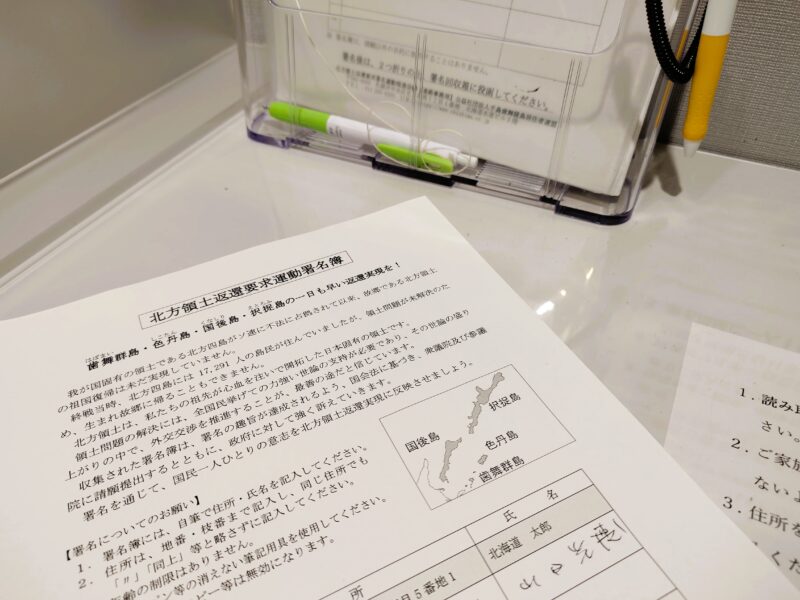 署名後は、2つ折りの
署名回収箱に投函してください。
北方領土返還要求運動署名簿
はぼまい しこたん くなしり えとろふ
歯舞群島・色丹島・国後島・択捉島の一日も早い返還実現を!
我が国固有の領土である北方四島がソ連に不法に占拠されて以来、故郷である北方領土
の祖国復帰は未だ実現していません。
終戦当時、北方四島には 17,291 人の島民が住んでいましたが、領土問題が未解決のた
め、生まれ故郷に帰ることもできません。
北方領土は、私たちの祖先が心血を注いで開拓した日本固有の領土です。
領土問題の解決には、全国民挙げての力強い世論の支持が必要であり、その世論の盛り
上がりの中で、外交交渉を推進することが、最善の途だと信じています。
収集された署名簿は、署名の趣旨が達成されるよう、国会法に基づき、衆議院及び参議
院に請願提出するとともに、政府に対して強く訴えていきます。
署名を通じて、国民一人ひとりの意志を北方領土返還実現に反映させましょう。
択捉島
国後島
色丹島
歯舞群島
【署名についてのお願い】
1. 署名簿には、自筆で住所・氏名を記入してください。
2. 住所は、地番・枝番まで記入し、同じ住所でも
「〃」「同上」等と略さずに記入してください。
年齢の制限はありません。
ン等の消えない筆記用具を使用してください。
ピー等は無効になります。
所
氏 名
5番地1
北海道 太郎
1. 読み
さい。
2. ご家族
ないよ
3. 住所を